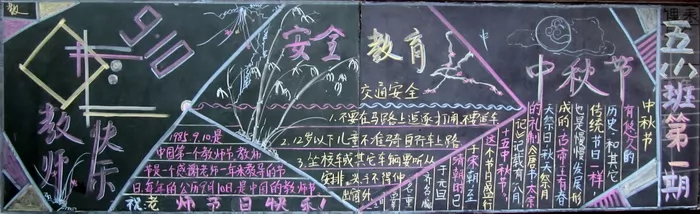 9.10
教师
快乐
1985.9.10是
中国第一个教师节,教师
节是一个感谢老师一年来教导的节
日,每年的公历9月10日是中国的教师节
祝老师节日快乐!
安全教育
交通安全
1.不要在马路上追逐打闹,不要追车
2.12岁以下儿童不准骑自行车上路
3.坐校车或其它车辆要听从
安排,头不得伸
出窗外
中秋节
中秋节
有悠久的
历史,和其它
传统节日一样
也是慢慢发展形
成的,古帝王有春
天祭日,秋天祭月
的礼制
记载有八月
十五中秋节
这个节日盛行
于宋朝,至
明朝时已
于元旦
五(八)班第一期